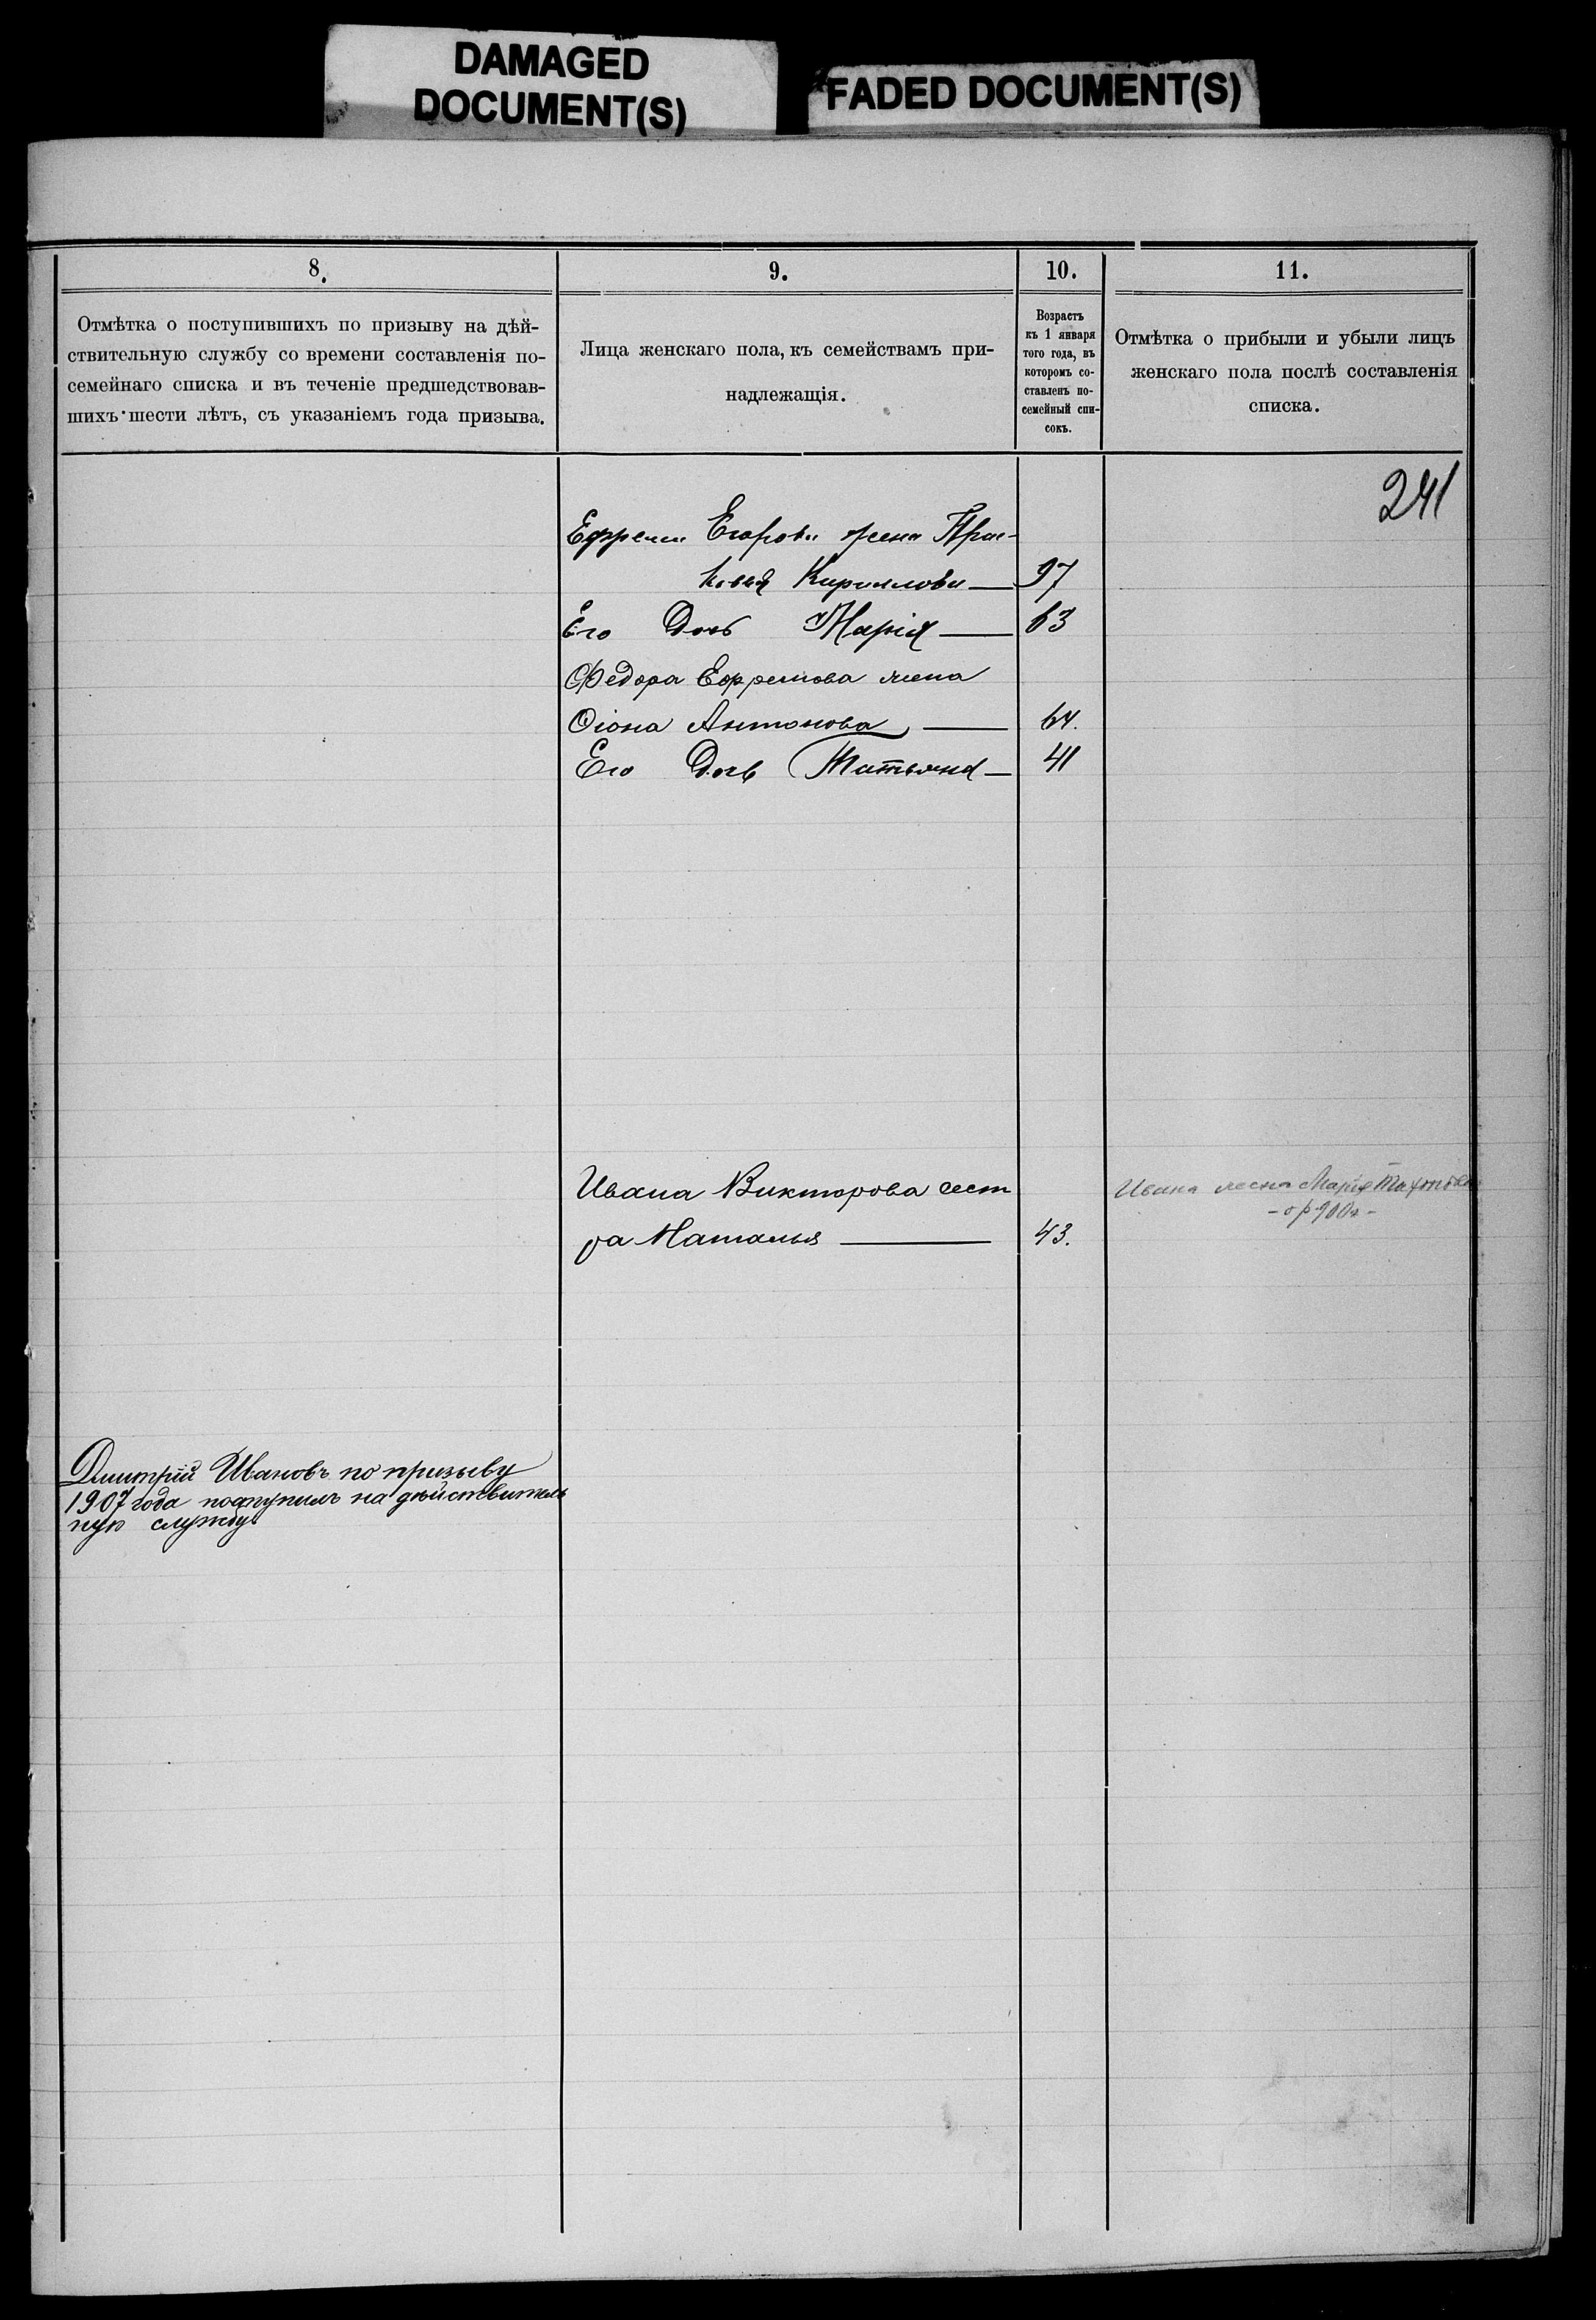 DAMAGED
DOCUMENT(S)
FADED DOCUMENT(S)
8.
9.
10.
11.
Отмѣтка о поступившихъ по призыву на дѣй-
ствительную службу со времени составленія по-
семейнаго списка и въ теченіе предшедствовав-
шихъ шести лѣтъ, съ указаніемъ года призыва.
Лица женскаго пола, къ семействамъ при-
надлежащія.
Возрастъ
къ 1 января
того года, въ
которомъ со-
ставленъ по-
семейный спи-
сокъ.
Отмѣтка о прибыли и убыли лицъ
женскаго пола послѣ составленія
списка.
241
Ефрема Егорова жена Прас-
ковья Кирилова — 97
Его Дочь Марія — 63
Федора Ефремова жена
Ѳіона Антонова — 64.
Его Дочь Татьяна — 41
Ивана Викторова сест
ра Наталья — 43.
Ивана жена Марія
Дмитрій Ивановъ по призыву
1907 года поступилъ на дѣйствитель
ную службу